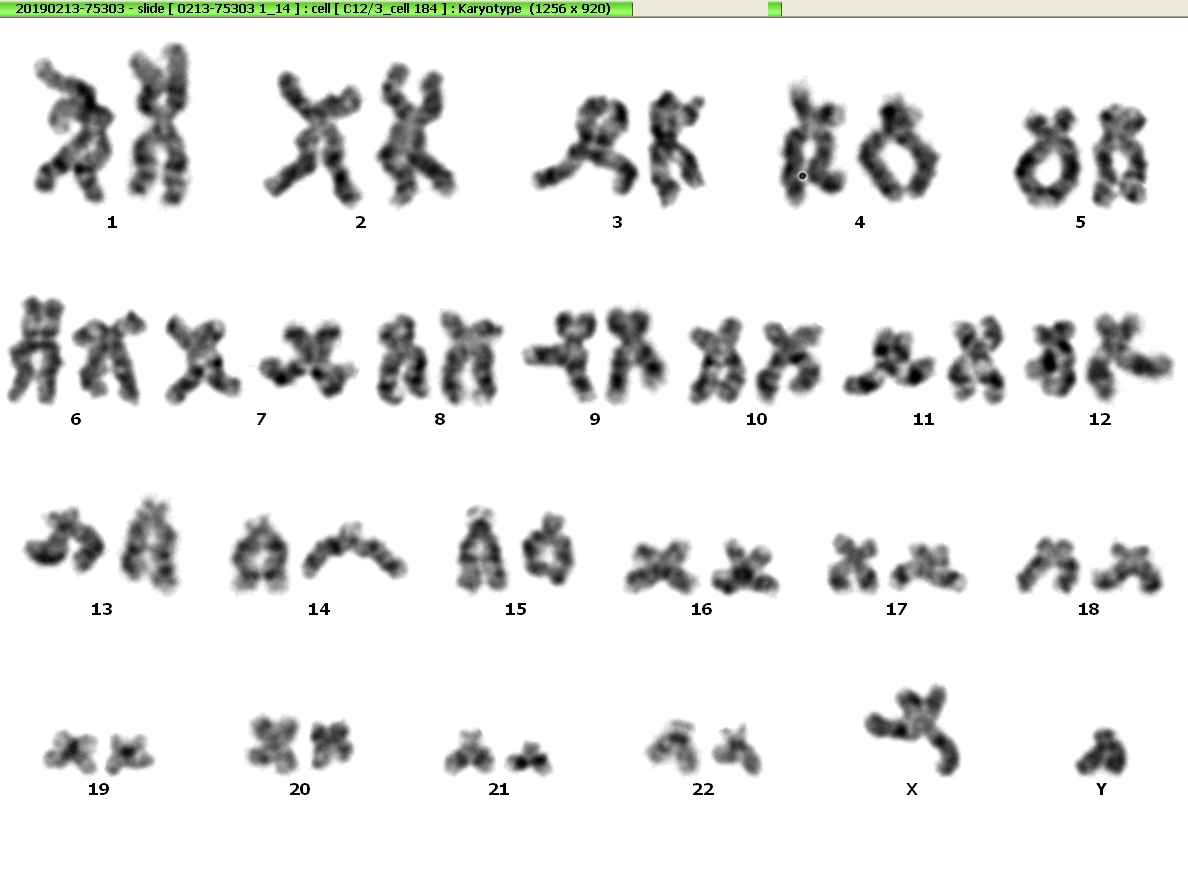 20190213-75303 - slide [ 0213-75303 1_14 ] : cell [ C12/3_cell 184 ] : Karyotype (1256 x 920)
1 2 3 4 5
6 7 8 9 10 11 12
13 14 15 16 17 18
19 20 21 22 X Y